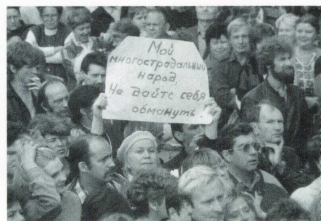 Мой
многострадальный
народ,
Не дайте себя
обмануть!